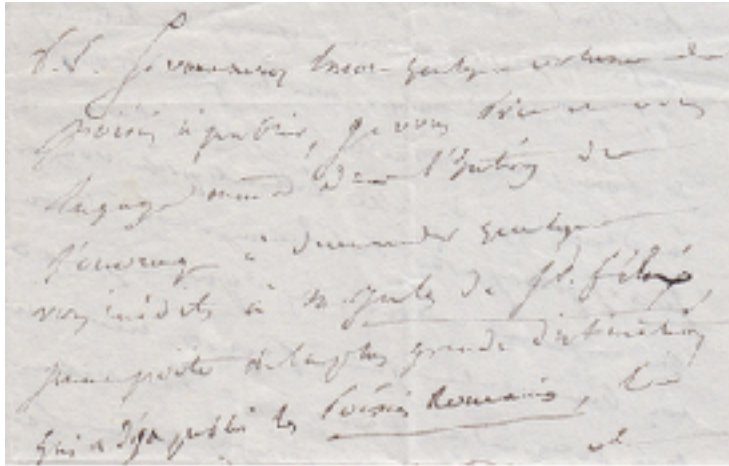 P.S. Si vous aviez encore quelque volume de
poésies à publier, je vous
engage dans l'intérêt de
l'ouvrage à demander quelques
vers inédits à M. Jules de St. Félix,
jeune poète de la plus grande distinction
qui a déjà publié les Poésies Romaines,